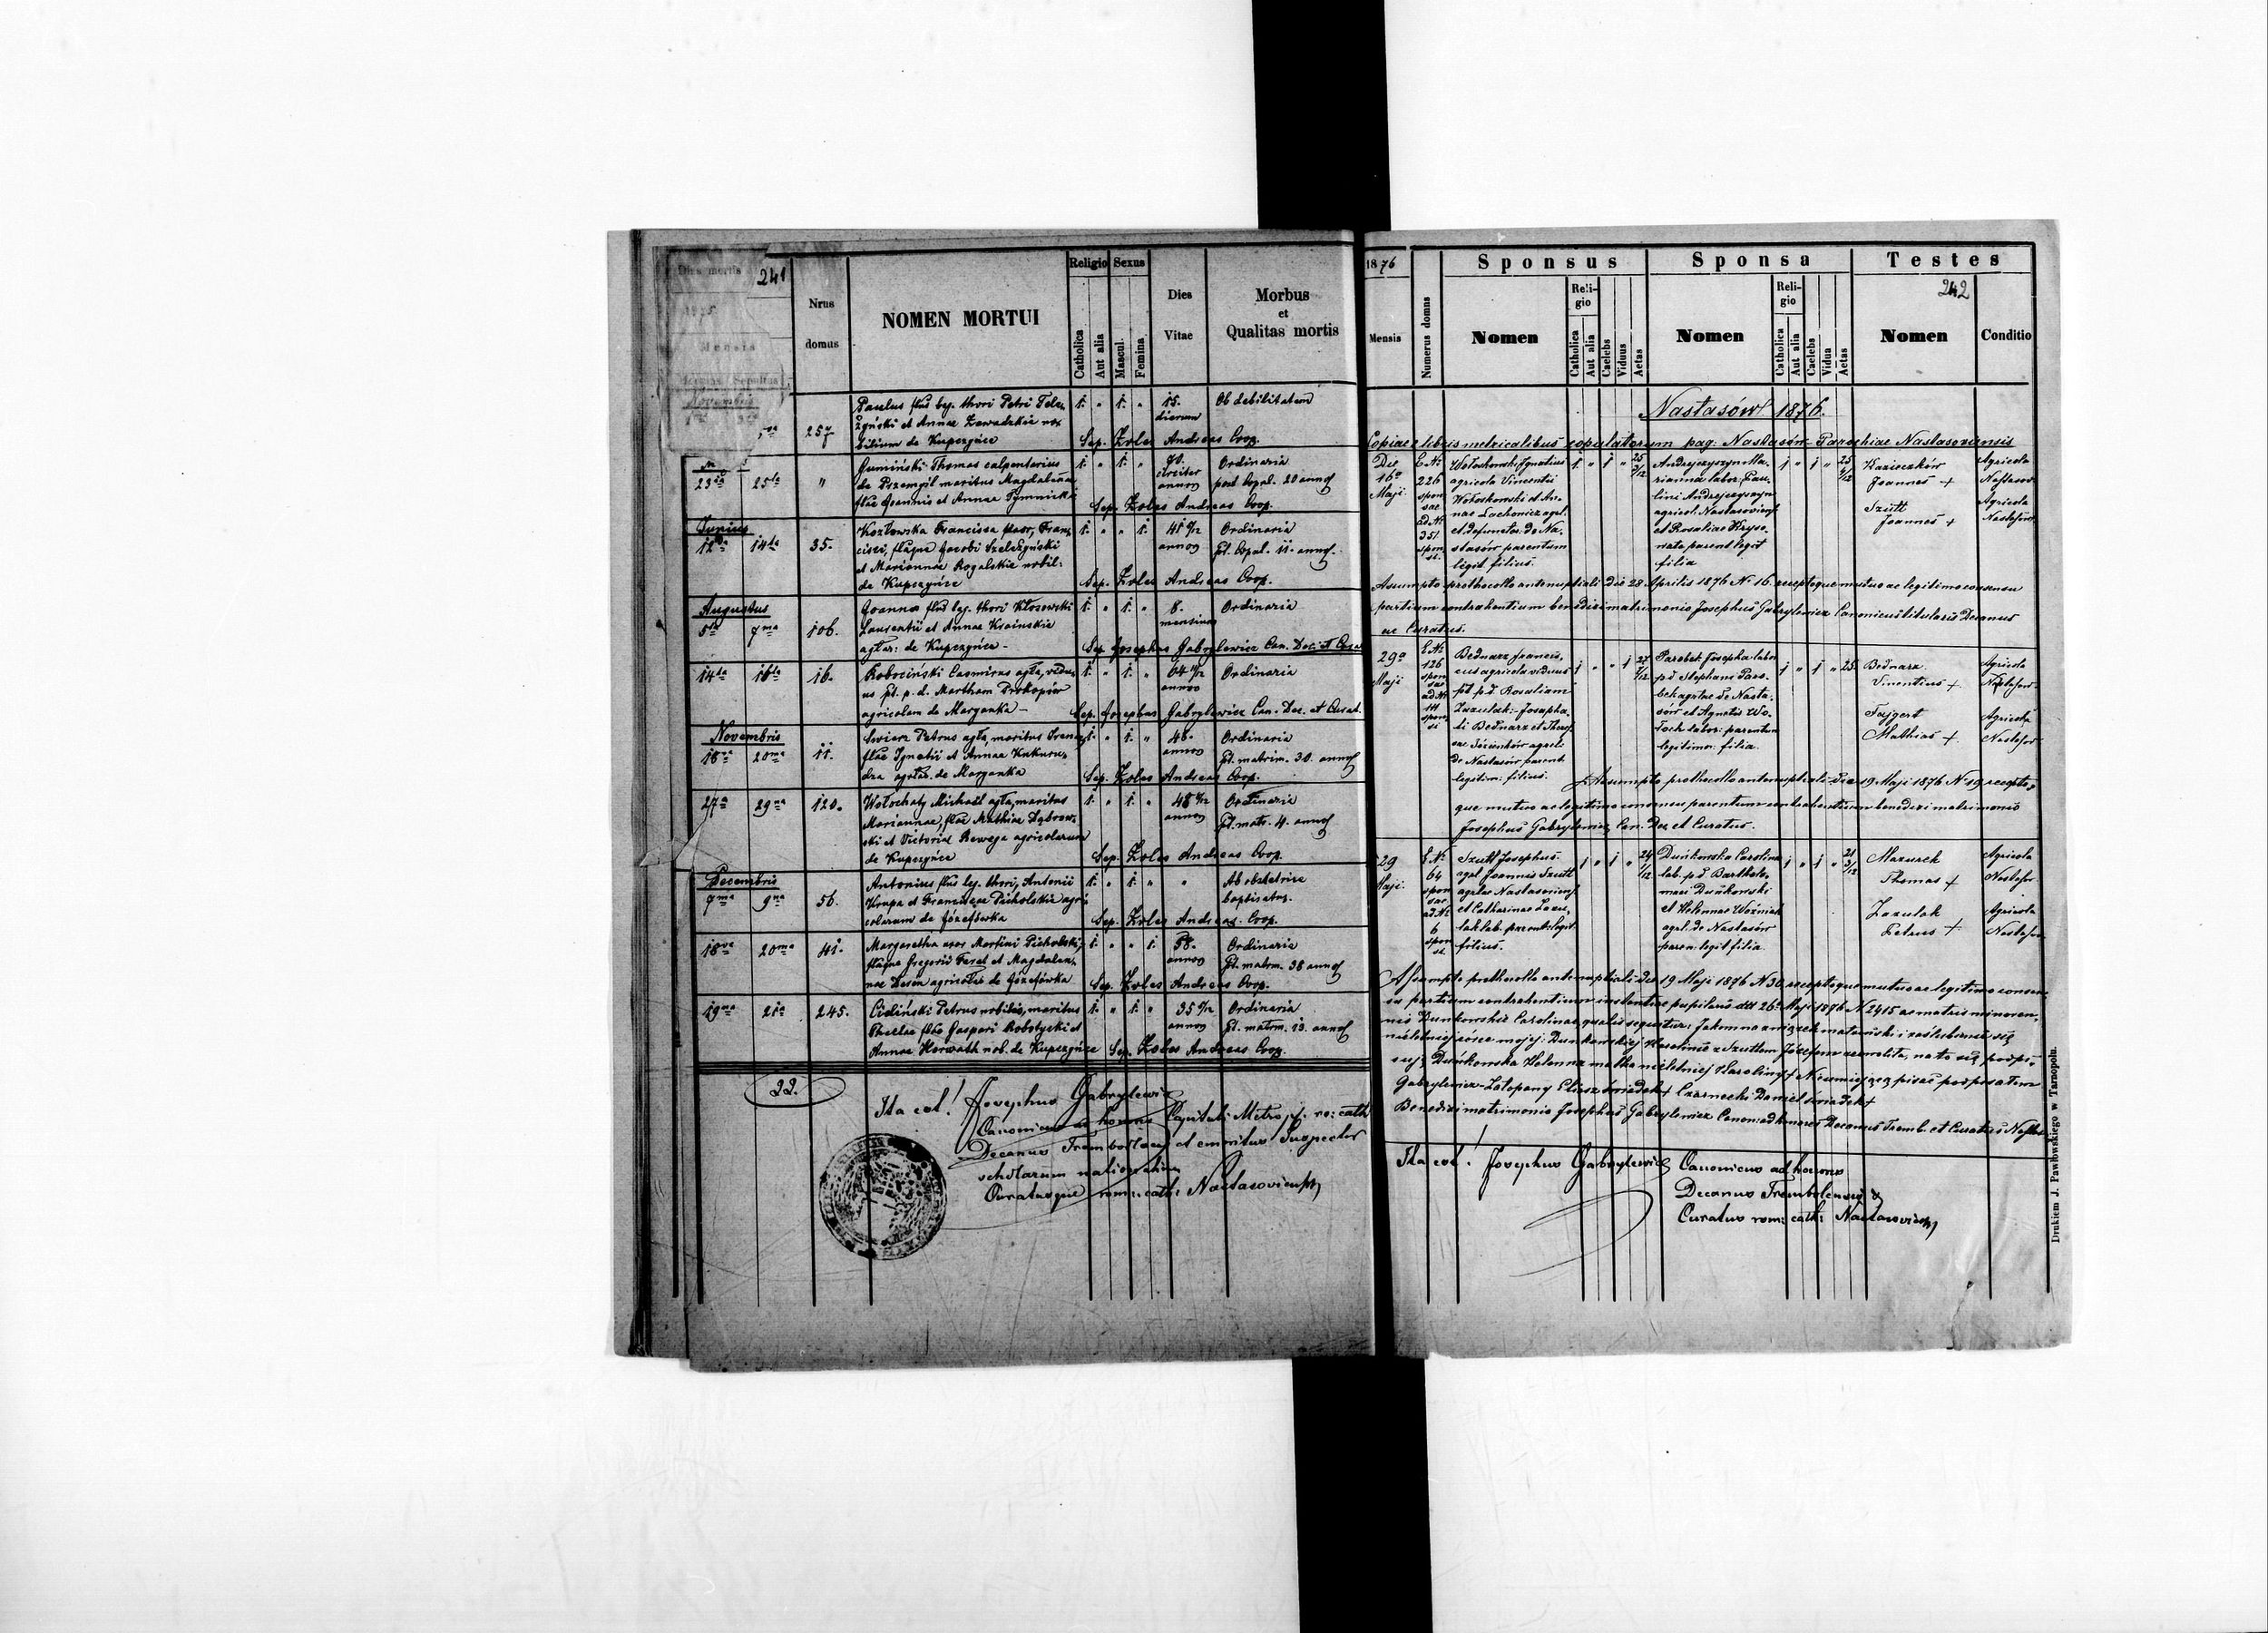 Dies mortis
241
1875
Mensis
Mortuus Sepultus
Nrus
domus
NOMEN MORTUI
Religio Sexus
Catholica
Aut alia
Mascul.
Femina
Dies
Vitae
Morbus
et
Qualitas mortis
Novembris
257
Paulus flius leg. thori Petri
et Annae Zawadzkie no-
bilium de Kupczyńce
1. " 1. "
15.
dierum
Ob debilitatem
Sep. Zoles Andreas Coop.
23tia 25ta "
Gumiński Thomas calpentarius
de Przemyśl maritus Magdalenae
fliae Joannis et Annae
1. " 1. "
70.
circiter
annor.
Ordinaria
post Copul. 20 annor.
Sep. Zoles Andreas Coop.
Junius
12da 14ta 35.
Kozłowska Francisca uxor, Fran-
cisci, Jacobi
et Mariannae Rogalskie nobil:
de Kupczyńce
1. " " 1.
annor.
Ordinaria
pt. Copul. 11. annor.
Sep. Zoles Andreas Coop.
Augustus
5ta 7ma 106.
Joannes flius leg. thori Kłosowski
Laurentii et Annae Kraińskie
agtar: de Kupczyńce -
1. " 1. "
8.
mensium
Ordinaria
Sep. Josephus Gabrylewicz Can. Dec. et Curat.
14ta 16ta 16.
Casimirus agta, vidu-
us pt. p. d. Martham Prokopów
agricolam de Maryanka -
1. " 1. "
annor.
Ordinaria
Sep. Josephus Gabrylewicz Can. Dec. et Curat.
Novembris
18va 20ma 11.
Swierz Petrus agta, maritus
fliae Ignatii et Annae Kukuru-
dza agtar. de Maryanka
1. " 1. "
48.
annor.
Ordinaria
pt. matrim. 30. annor.
Sep. Zoles Andreas Coop.
27ma 29na 120.
Wołochaty Michaël agta, maritus
Mariannae, fliae Mathiae Dąbrow-
ski et Victoriae Rewega agricolarum
de Kupczyńce
1. " 1. "
annor.
Ordinaria
pt. matr. 4. annor.
Sep. Zoles Andreas Coop.
Decembris
7ma 9na 56.
Antonius flius leg. thori, Antonii
Krupa et Franciscae Picholskie agri-
colarum de Józefówka
1. " 1. " "
Ab obstetrice
baptisatus.
Sep. Zoles Andreas Coop.
18va 20ma 41.
Margaretha uxor Martini Picholski,
Gregorii et Magdale-
nae agricolar de Józefówka
1. " " 1.
58.
annor.
Ordinaria
pt. matrm. 38 annor.
Sep. Zoles Andreas Coop.
19na 21a 245.
Cieliński Petrus nobilis, maritus
Theclae fliae Gaspari Robotycki et
Annae Horwath nob. de Kupczyńce
1. " 1. "
annor.
Ordinaria
pt. matrm. 13. annor.
Sep. Zoles Andreas Coop.
22.
Ita est! Josephus Gabrylewicz
Canonicus ad honores Capituli Metrop. r: cath
Decanus Trembovlaen. et emeritus Inspector
scholarum nationalium
Curatusque rom: cath: Nastasoviensis
1876
Mensis
Numerus domus
Sponsus
Nomen
Reli-
gio
Catholica
Aut alia
Caelebs
Viduus
Aetas
Sponsa
Nomen
Reli-
gio
Catholica
Aut alia
Caelebs
Vidua
Aetas
Testes
242
Nomen
Conditio
Nastasów 1876.
Copiae e libris metricalibus copulatorum pag. Nastasów Parochiae Nastasoviensis
Die
16a
Maji
E No
226
spon
sae
ad No
351
spon
si.
Wołoskowski Ignatius
agricola Vincentii
Wołoskowski et An-
nae Lachowicz agrl.
et defunctor. de Na-
stasów parentum
legit. filius.
1. " 1 " 25 3/12
Andrejczyszyn Ma-
rianna labor. Pau-
lini Andrejczyszyn
agricol. Nastasoviens
et Rosaliae
parent. legit
filia
1 " 1 " 25
Kazieczków
Joannes +
Szutt
Joannes +
Agricola
Nastasov
Agricola
Nastasov
Assumpto prothocollo antenuptiali die 28 Aprilis 1876 N 16. receptoque mutuo ac legitimo consensu
partium contrahentium benedixi matrimonio Josephus Gabrylewicz Canonicus titularis Decanus
ac Curatus.
29a
Maji
E No
126
spon
sae
ad No
111
spon
si
Bednarz Francis-
cus agricola viduus
pt. p.d. Rosaliam
Zazulak - Josepha-
ti Bednarz et There-
sae Józienków agrcle
de Nastasów parent
legitim: filius.
1 " " 1
Parobek Josepha labor
p.d. Stephani Paro-
bek agrlae de Nasta-
sów et Agnetis Wo-
łoch labor. parentum
legitimor. filia.
1 " 1 " 25
Bednarz
Vincentius +
Fajgert
Mathias +
Agricola
Nastasov
Agricola
Nastasov
Assumpto prothocollo antenuptiali die 19 Maji 1876 N 19 recepto-
que mutuo ac legitimo consensu parentum contrahentium benedixi matrimonio
Josephus Gabrylewicz Can. Dec. et Curatus.
29
Maji
E No
64
spon
sae
ad No
6
spon
si.
Szutt Josephus.
agrl. Joannis Szutt
agrlae Nastasoviens
et Catharinae Zazu-
lak lab. parent. legit.
filius.
1 " 1 " 24
Duńkowska Carolina
lab. p.d. Bartholo-
maei Duńkowski
et Helennae Woźniak
agrl. de Nastasów
paren. legit filia.
1 " 1 " 21 3/12
Mazurek
Thomas +
Zazulak
Petrus +
Agricola
Nastasov
Agricola
Nastasov
Assumpto prothocollo antenuptiali die 19 Maji 1876 N 30 receptoque mutuo ac legitimo consen-
su partium contrahentium instantiae pupilaris ddt 26 Maji 1876 N 2415 ac matris minoren-
nis Dunkowskie Carolinae qualis sequitur: Jako na związek małżeński i zaślubienie się
nieletniej córce mojej: Dunkowskiej Karolinie z Szuttem Józefem zezwoliła, na to się podpi-
suję Duńkowska Helenna matka nieletniej Karoliny + Nieumiejącą pisać podpisałem
Gabrylewicz - Zatopany Eliasz świadek + Czarnecki Daniel świadek +
Benedixi matrimonio Josephus Gabrylewicz Canon: ad honores Decanus Tremb. et Curatus Nastas
Ita est! Josephus Gabrylewicz Canonicus ad honores
Decanus Trembolensis &
Curatus rom: cath: Nastasoviensis
Drukiem J. Pawłowskiego w Tarnopolu.